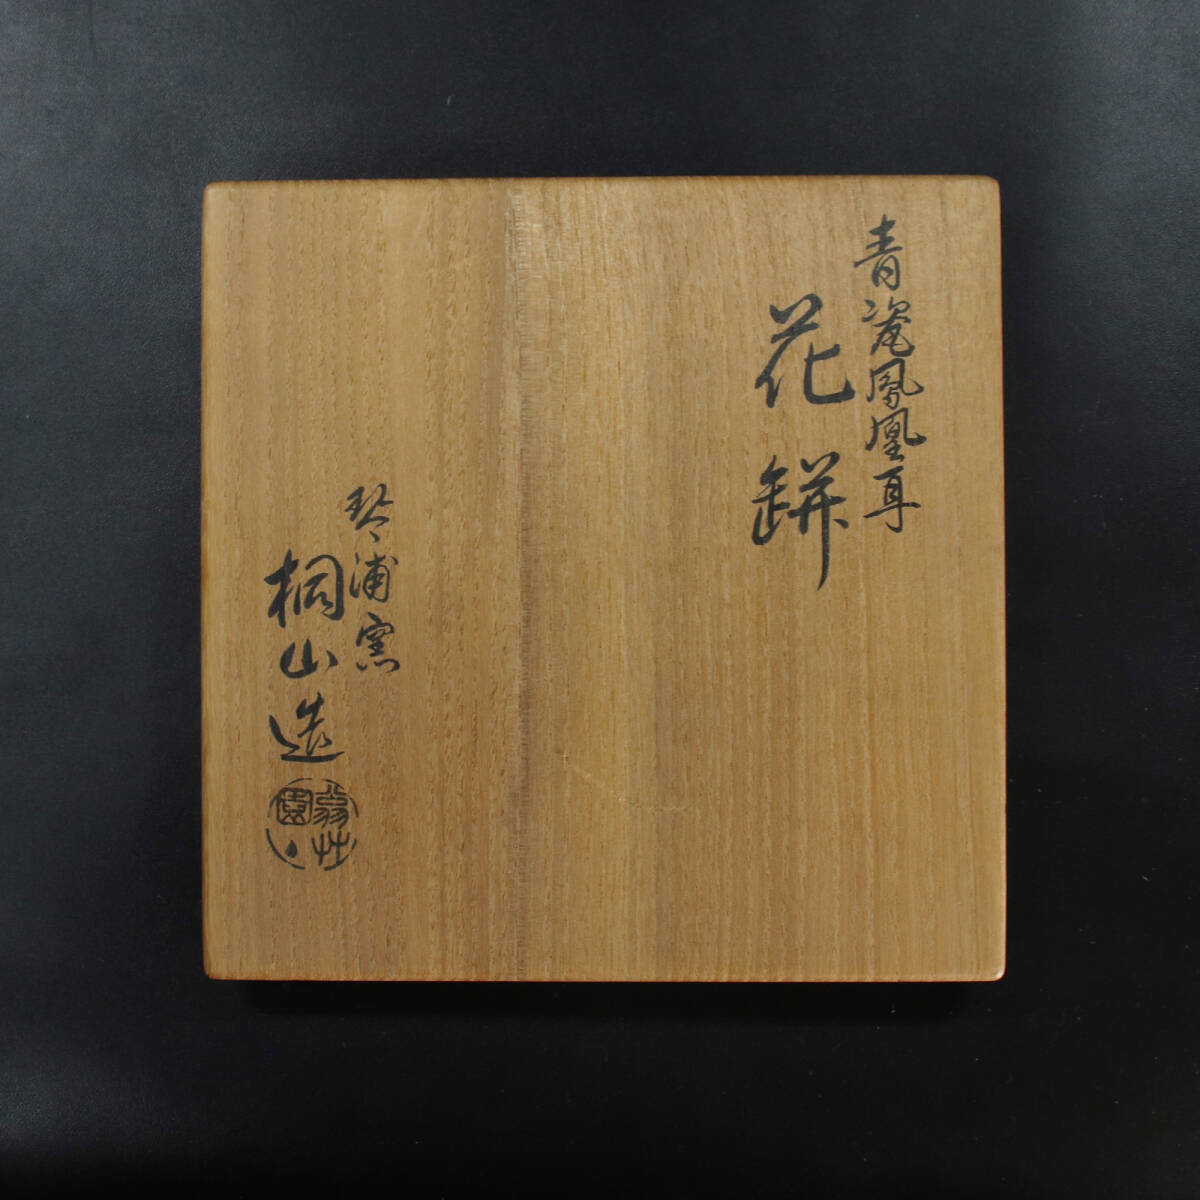 青瓷鳳凰耳
花缾
琴浦窯
桐山造